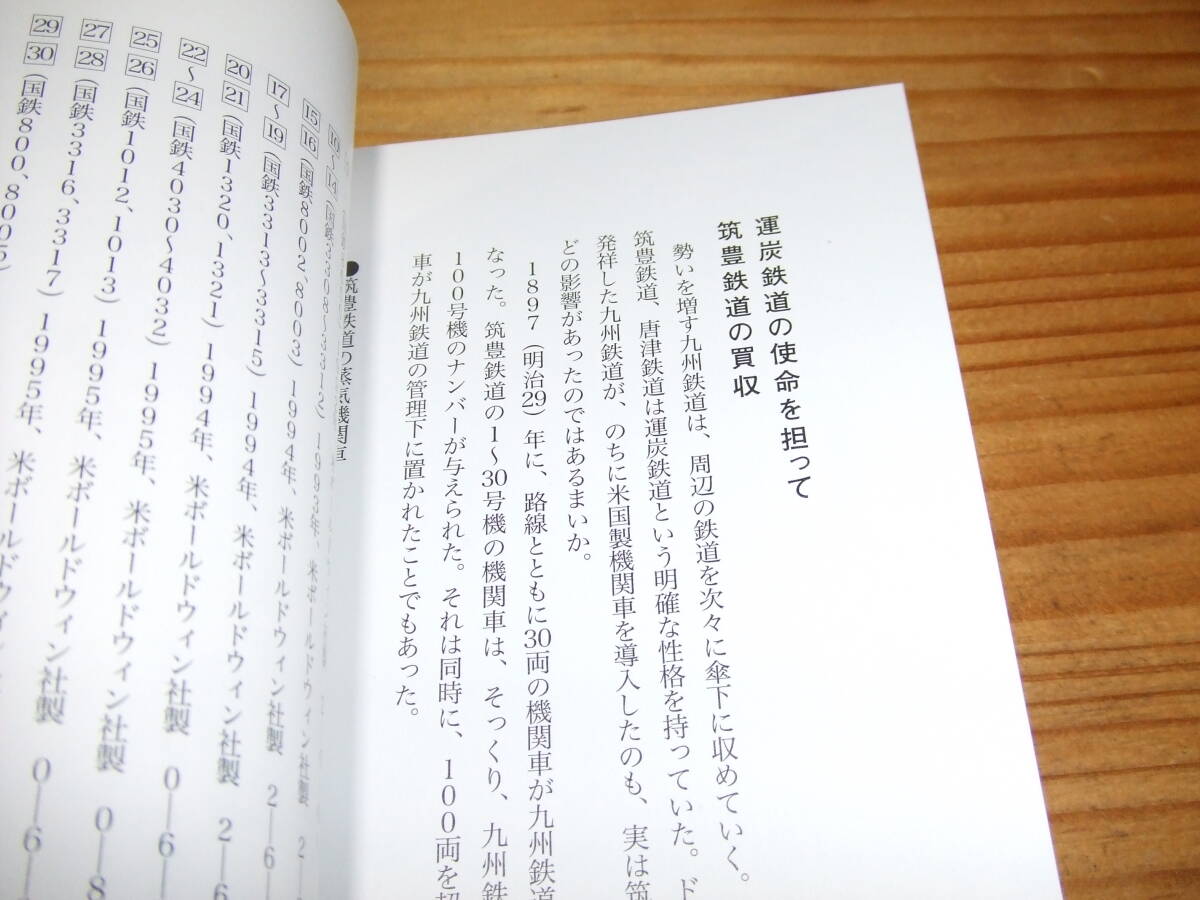 運炭鉄道の使命を担って
筑豊鉄道の買収
勢いを増す九州鉄道は、周辺の鉄道を次々に傘下に収めていく。
筑豊鉄道、唐津鉄道は運炭鉄道という明確な性格を持っていた。ド
発祥した九州鉄道が、のちに米国製機関車を導入したのも、実は筑
どの影響があったのではあるまいか。
1897(明治29)年に、路線とともに30両の機関車が九州鉄道
なった。筑豊鉄道の1〜30号機の機関車は、そっくり、九州鉄
100号機のナンバーが与えられた。それは同時に、100両を超
車が九州鉄道の管理下に置かれたことでもあった。
●筑豊鉄道の蒸気機関車
10〜14(国鉄3308〜3312)1993年、米ボールドウィン
15 16(国鉄8002、8003)1994年、米ボールドウィン社製 2
17〜19(国鉄3313〜3315)1994年、米ボールドウィン社製 2―6
20 21(国鉄1320、1321)1994年、米ボールドウィン社製 2―6
22〜24(国鉄4030〜4032)1995年、米ボールドウィン社製 0―6
25 26(国鉄1012、1013)1995年、米ボールドウィン社製 0―8
27 28(国鉄3316、3317)1995年、米ボールドウィン社製 0―6
29 30(国鉄800、8005)1995年、米ボールドウィン